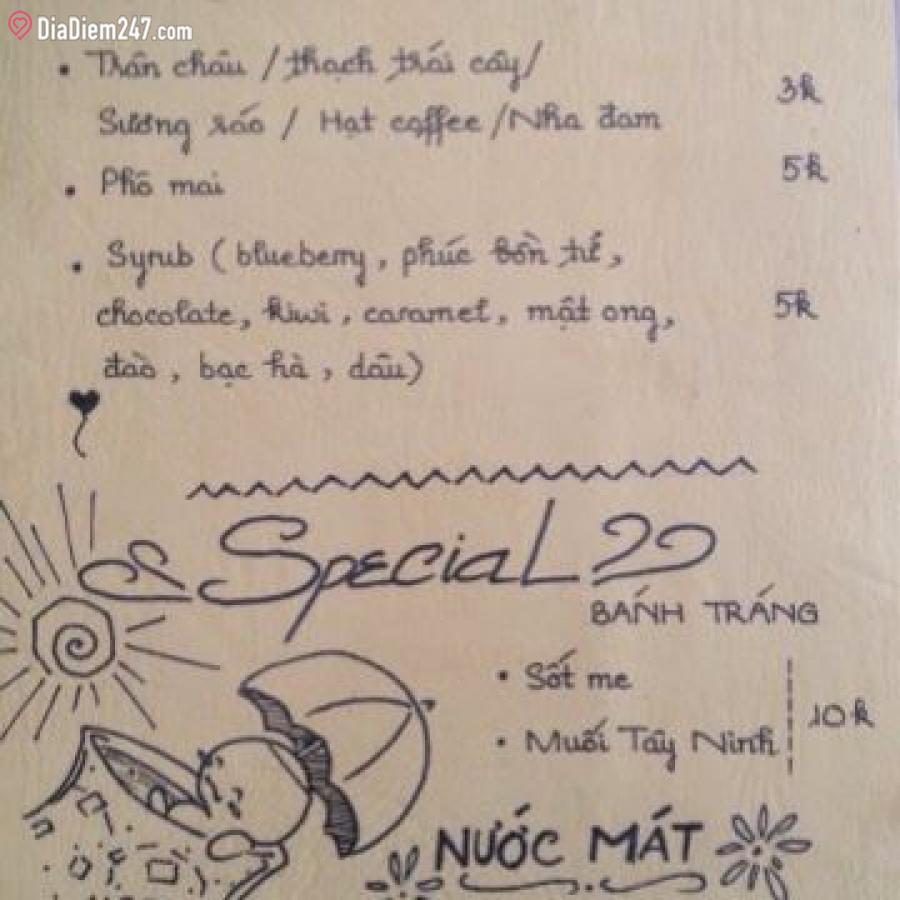 DiaDiem247.com
• Trân châu / thạch trái cây /
Sương sáo / Hạt coffee / Nha đam 3k
• Phô mai 5k
• Syrub ( blueberry , phúc bồn tử ,
chocolate , kiwi , caramel , mật ong , 5k
đào , bạc hà , dâu )
Special
BÁNH TRÁNG
• Sốt me
• Muối Tây Ninh 10k
NƯỚC MÁT